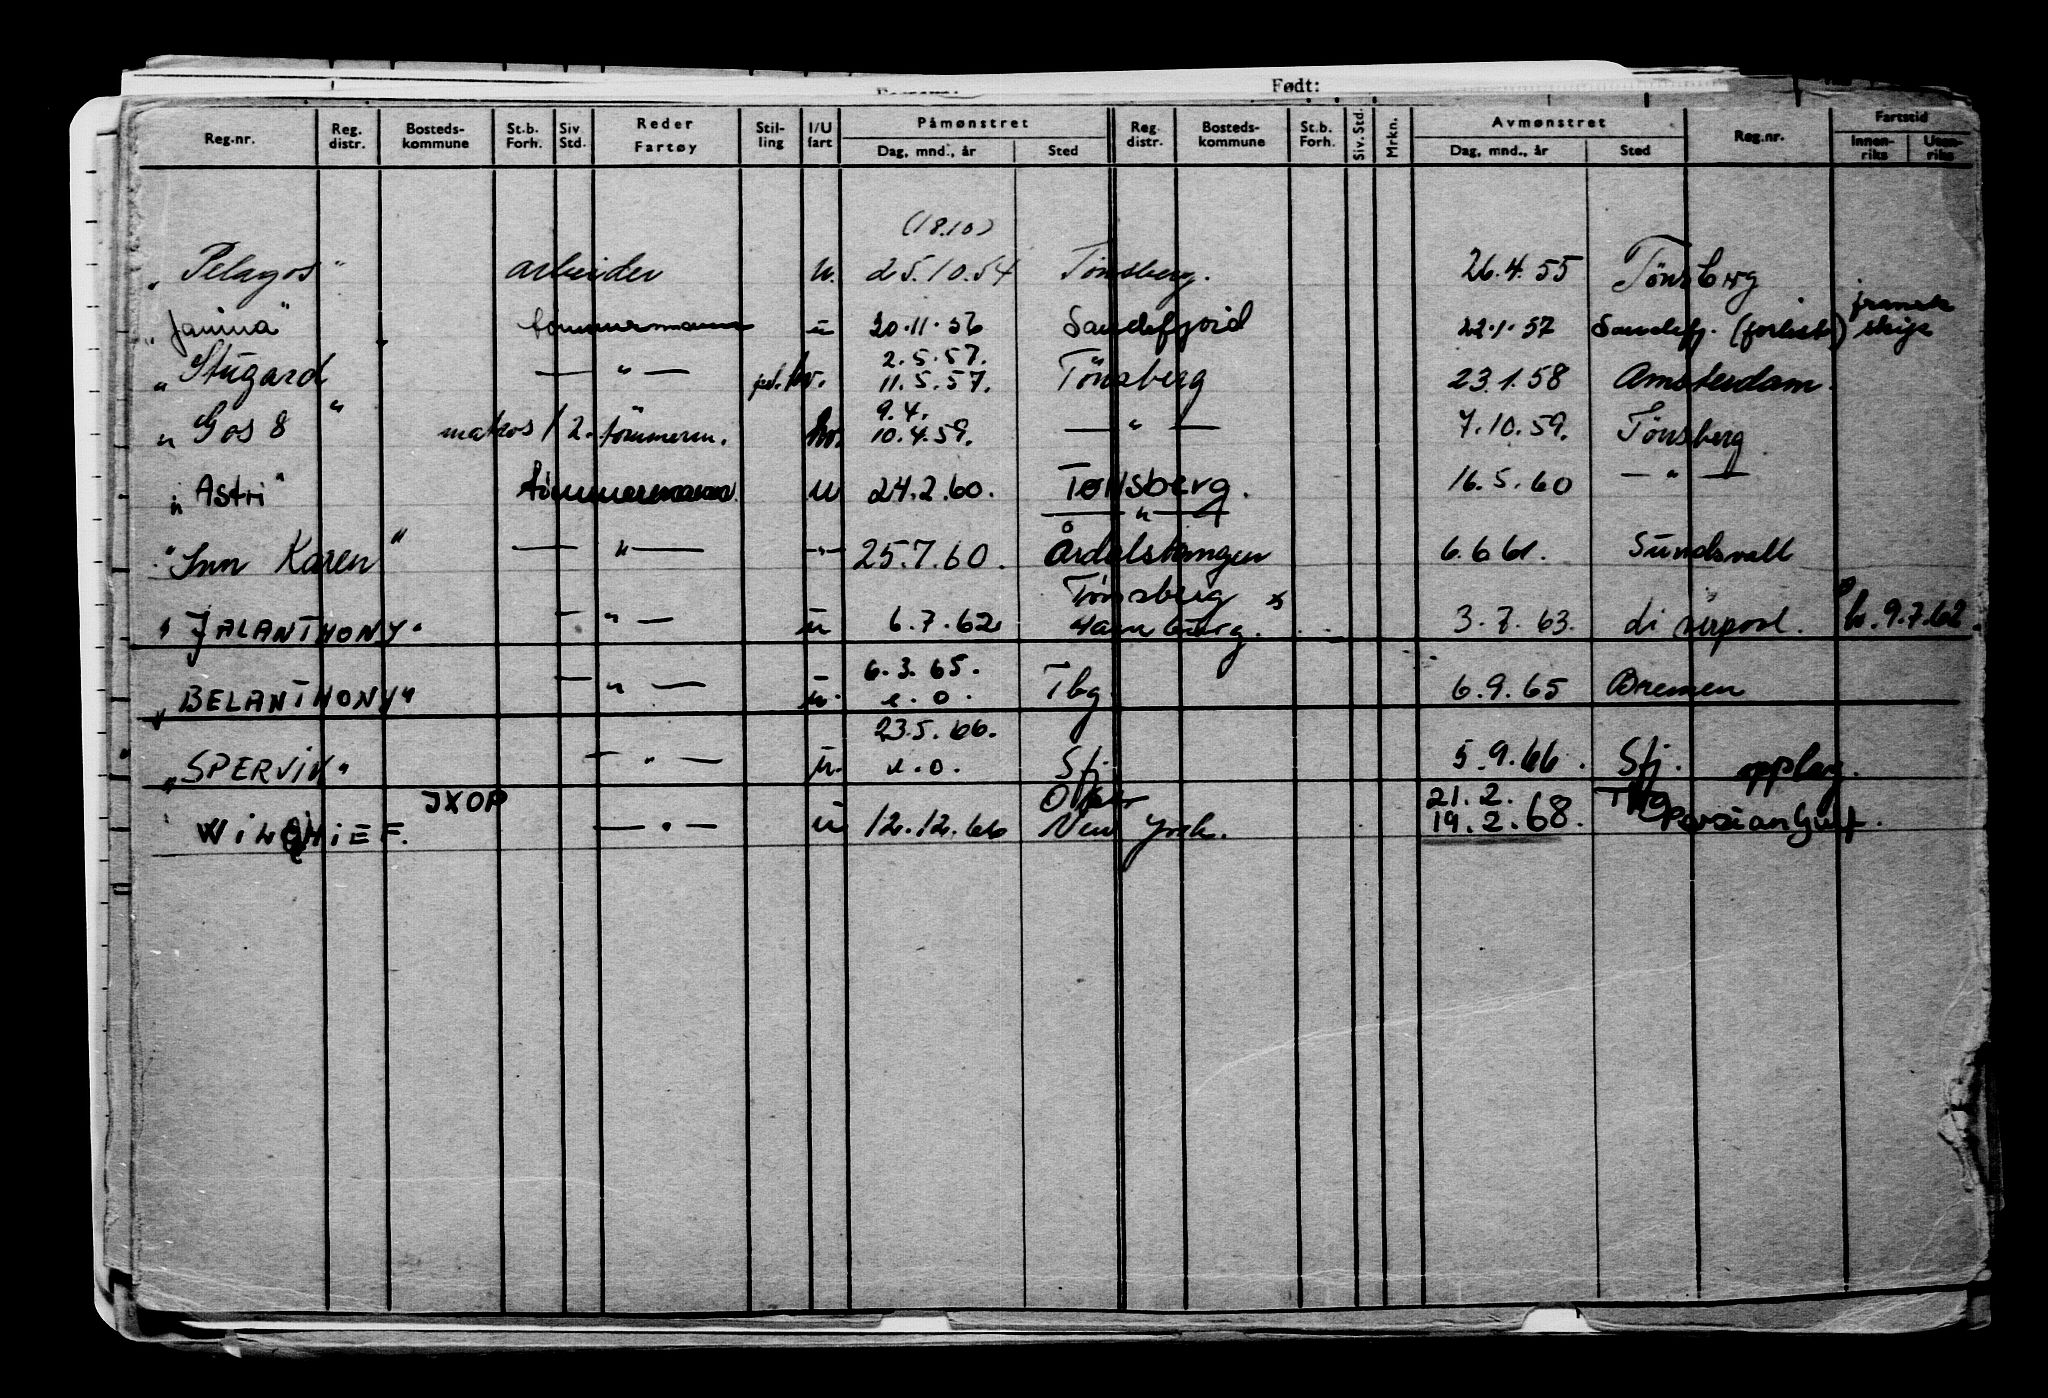 Født:
Reg.nr. Reg. distr. Bosteds- kommune St.b. Forh. Siv. Std. Reder Fartøy Stil- ling I/U fart Påmønstret Dag, mnd., år Sted Reg. distr. Bosteds- kommune St.b. Forh. Siv. Std. Mrkn. Avmønstret Dag, mnd., år Sted Reg.nr. Fartstid Innen- riks Uten- riks
(18.10)
"Pelagos" arbeider u. 25.10.54 Tønsberg. 26.4.55 Tønsberg
"Janina" tømmermann u 20.11.56 Sandefjord 22.1.57 Sandefj. (forlist) fransk skip
2.5.57.
"Stugard — " — hv. 11.5.57. Tønsberg 23.1.58 Amsterdam.
9.4.
"Gos 8" matros / 2. tømmerm. hv. 10.4.59. — " — 7.10.59. Tønsberg
"Astri" tømmermann u 24.2.60. Tønsberg. 16.5.60 — " —
— " —
"Inn Karen" — " — - " - 25.7.60. Årdalstangen 6.6 61. Sundsvall
Tønsberg
"JALANTHONY" — " — u 6.7.62 Hamburg. 3.7.63. Liverpool. 9.7.62.
6.3.65.
"BELANTHONY" — " — u. e.o. Tbg 6.9.65 Bremen
23.5.66.
"SPERVIK" — " — u. e.o. Sfj. 5.9.66. Sfj. opplag.
JXOP 21.2. Tbg
WILCHIEF. — " — u 12.12.66 New York. 19.2.68. Persian Gulf.